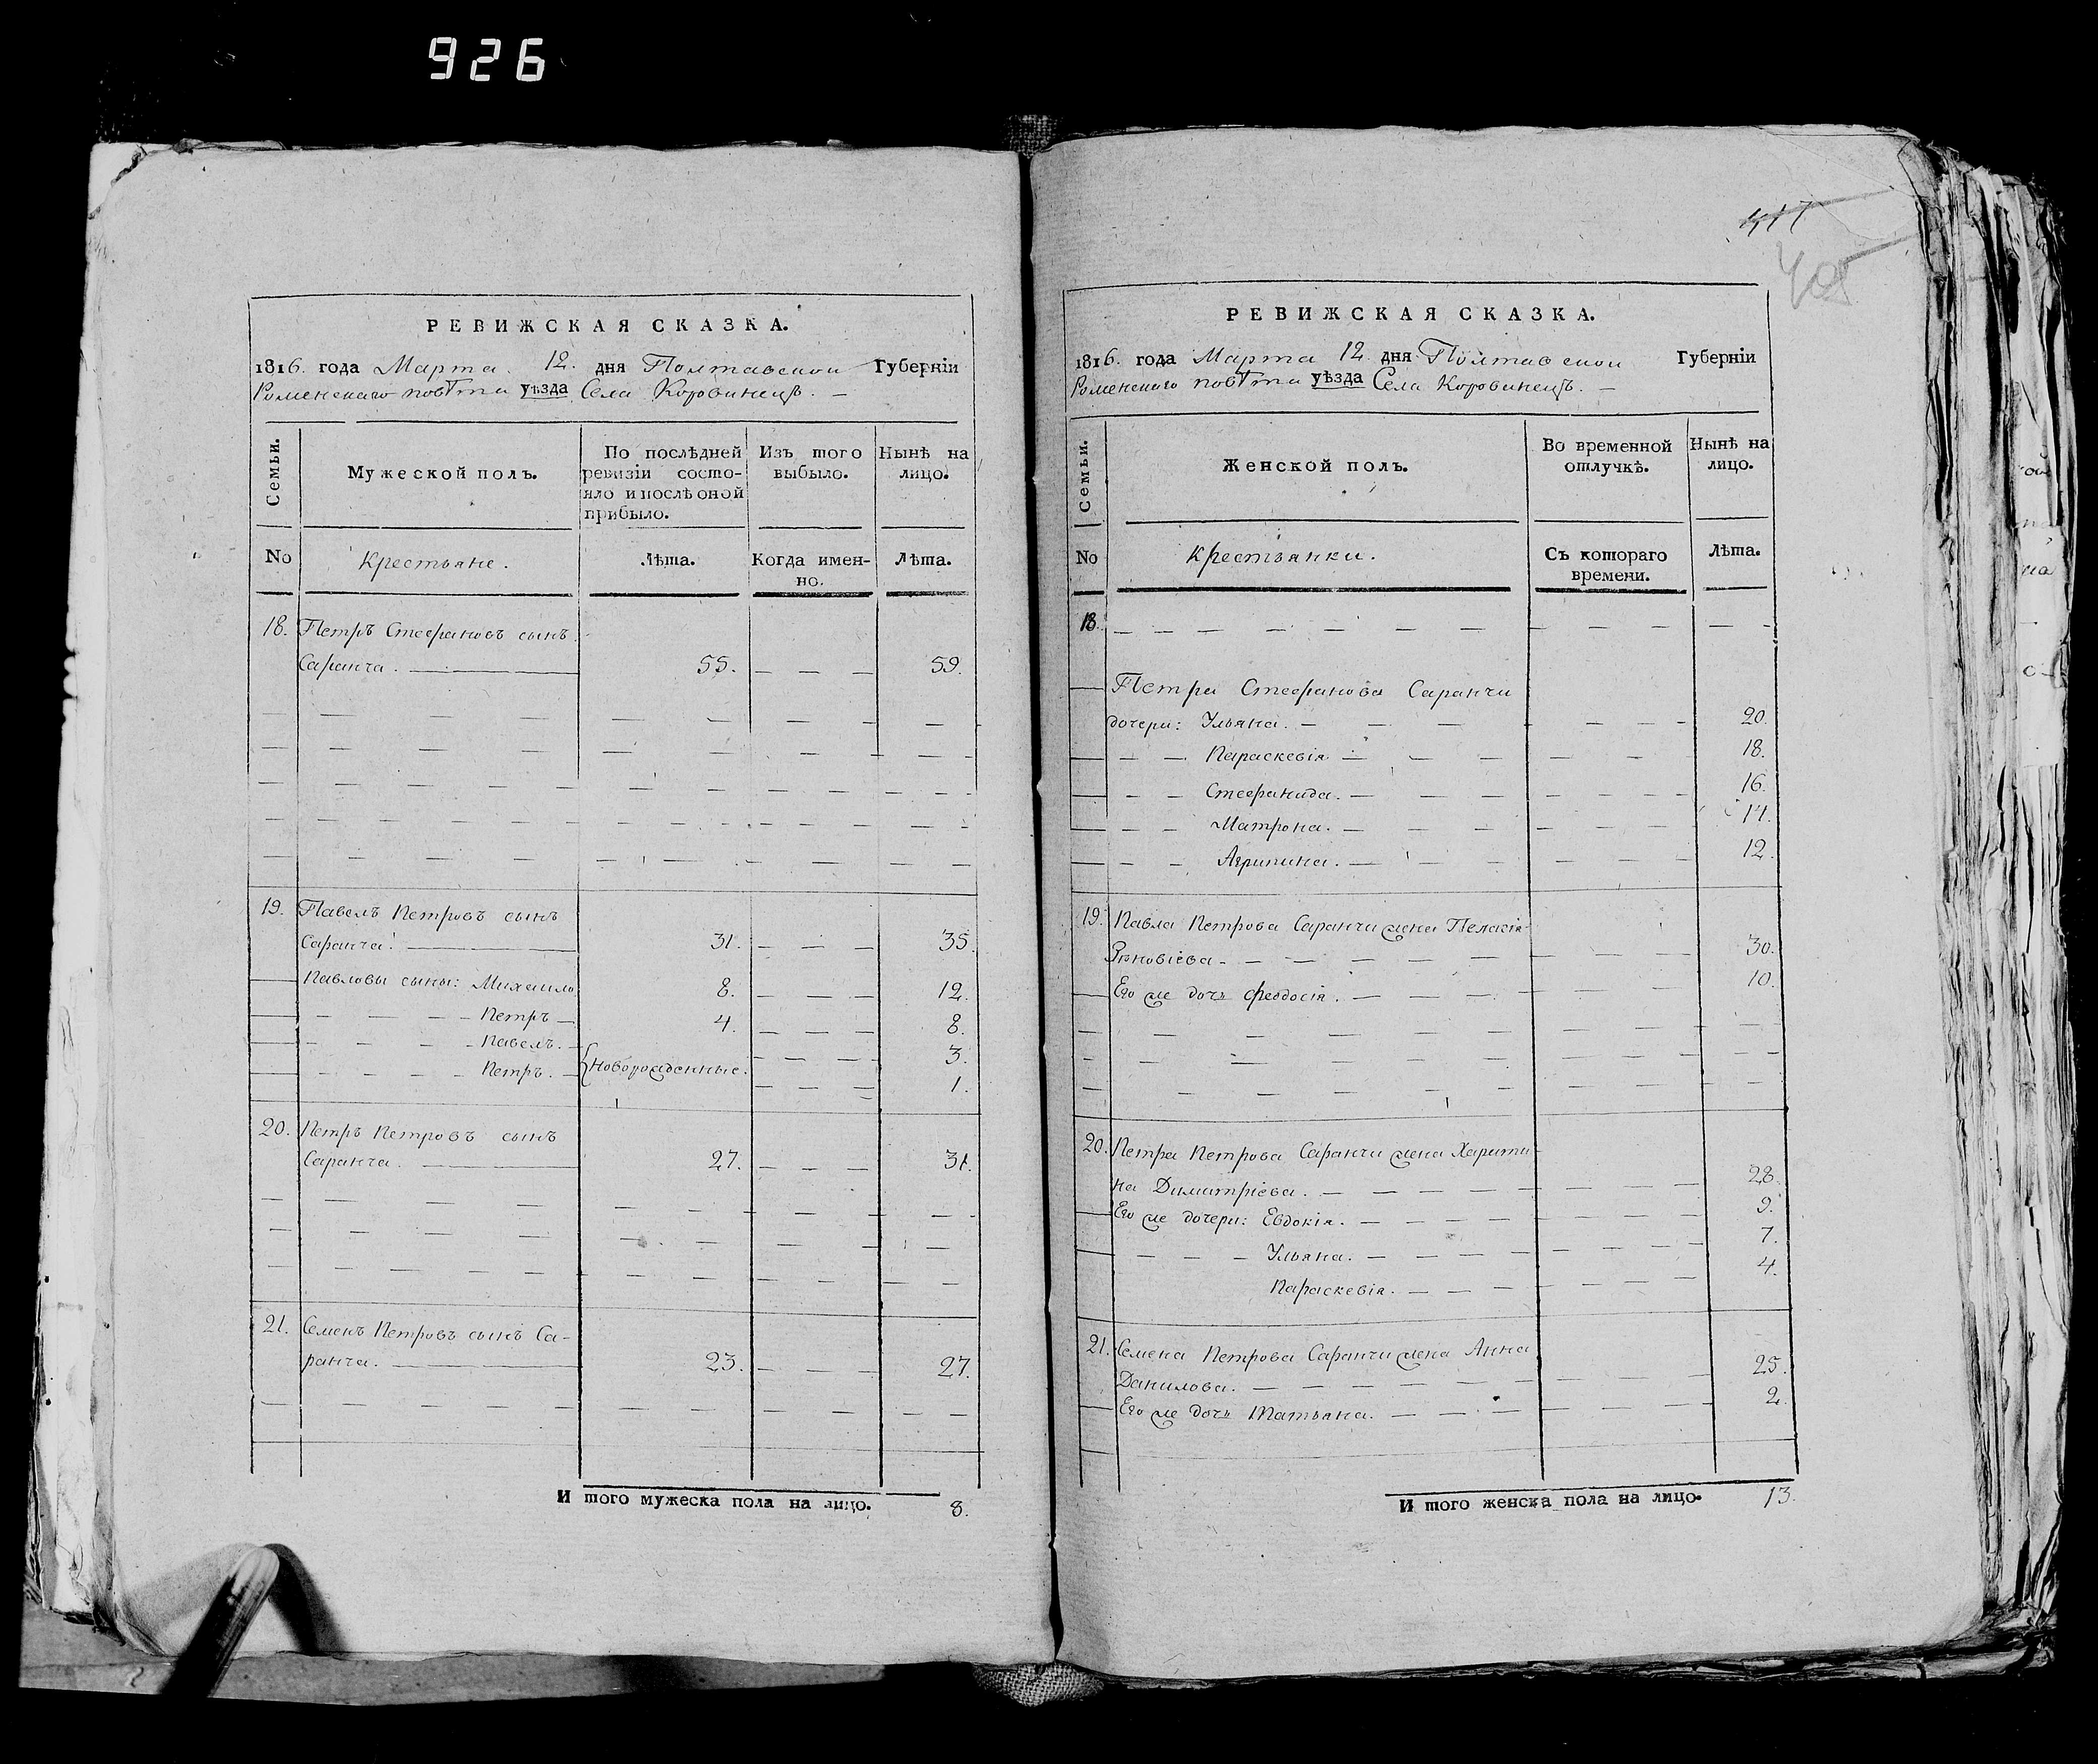 926
РЕВИЖСКАЯ СКАЗКА.
1816. года Марта 12. дня Полтавской Губерніи
Роменскаго повѣта уѣзда Села Коровинецъ. —
Семьи.
Мужеской полъ.
По послѣдней ревизіи состояло и послѣ оной прибыло.
Изъ того выбыло.
Нынѣ на лицо.
No
Крестьяне.
Лѣта.
Когда именно.
Лѣта.
18. Петръ Стефановъ сынъ
Саранча. 55. — — — 59.
19. Павелъ Петровъ сынъ
Саранча. 31. — — — 35.
Павловы сыны: Михаило 8. — — — 12.
— — — — Петръ — 4. — — — 8.
— — — — Павелъ. — {Новорожденные. — — — 3.
— — — — Петръ. — — — — 1.
20. Петръ Петровъ сынъ
Саранча. 27. — — — 31.
21. Семенъ Петровъ сынъ Са-
ранча. 23. — — — 27.
И того мужеска пола на лицо. 8.
417
405
РЕВИЖСКАЯ СКАЗКА.
1816. года Марта 12 дня Полтавской Губерніи
Роменскаго повѣта уѣзда Села Коровинецъ. —
Семьи.
Женской полъ.
Во временной отлучкѣ.
Нынѣ на лицо.
No
Крестьянки.
Съ котораго времени.
Лѣта.
18. — — — — — — —
Петра Стефанова Саранчи
дочери: Ульяна. — — — 20.
— — Параскевія — — — 18.
— — Стефанида. — — — 16.
— — Матрона. — — — 14.
— — Агрипина. — — — 12.
19. Павла Петрова Саранчи жена Пелагія
Зѣновіева. — — — 30.
Его же дочь Феодосія. — — — 10.
20. Петра Петрова Саранчи жена Харити-
на Димитріева. — — — 28.
Его же дочери: Евдокія. — — — 9.
— — — Ульяна. — — — 7.
Параскевія. — — — 4.
21. Семена Петрова Саранчи жена Анна
Данилова. — — — 25.
Его же дочь Татьяна. — — — 2.
И того женска пола на лицо. 13.